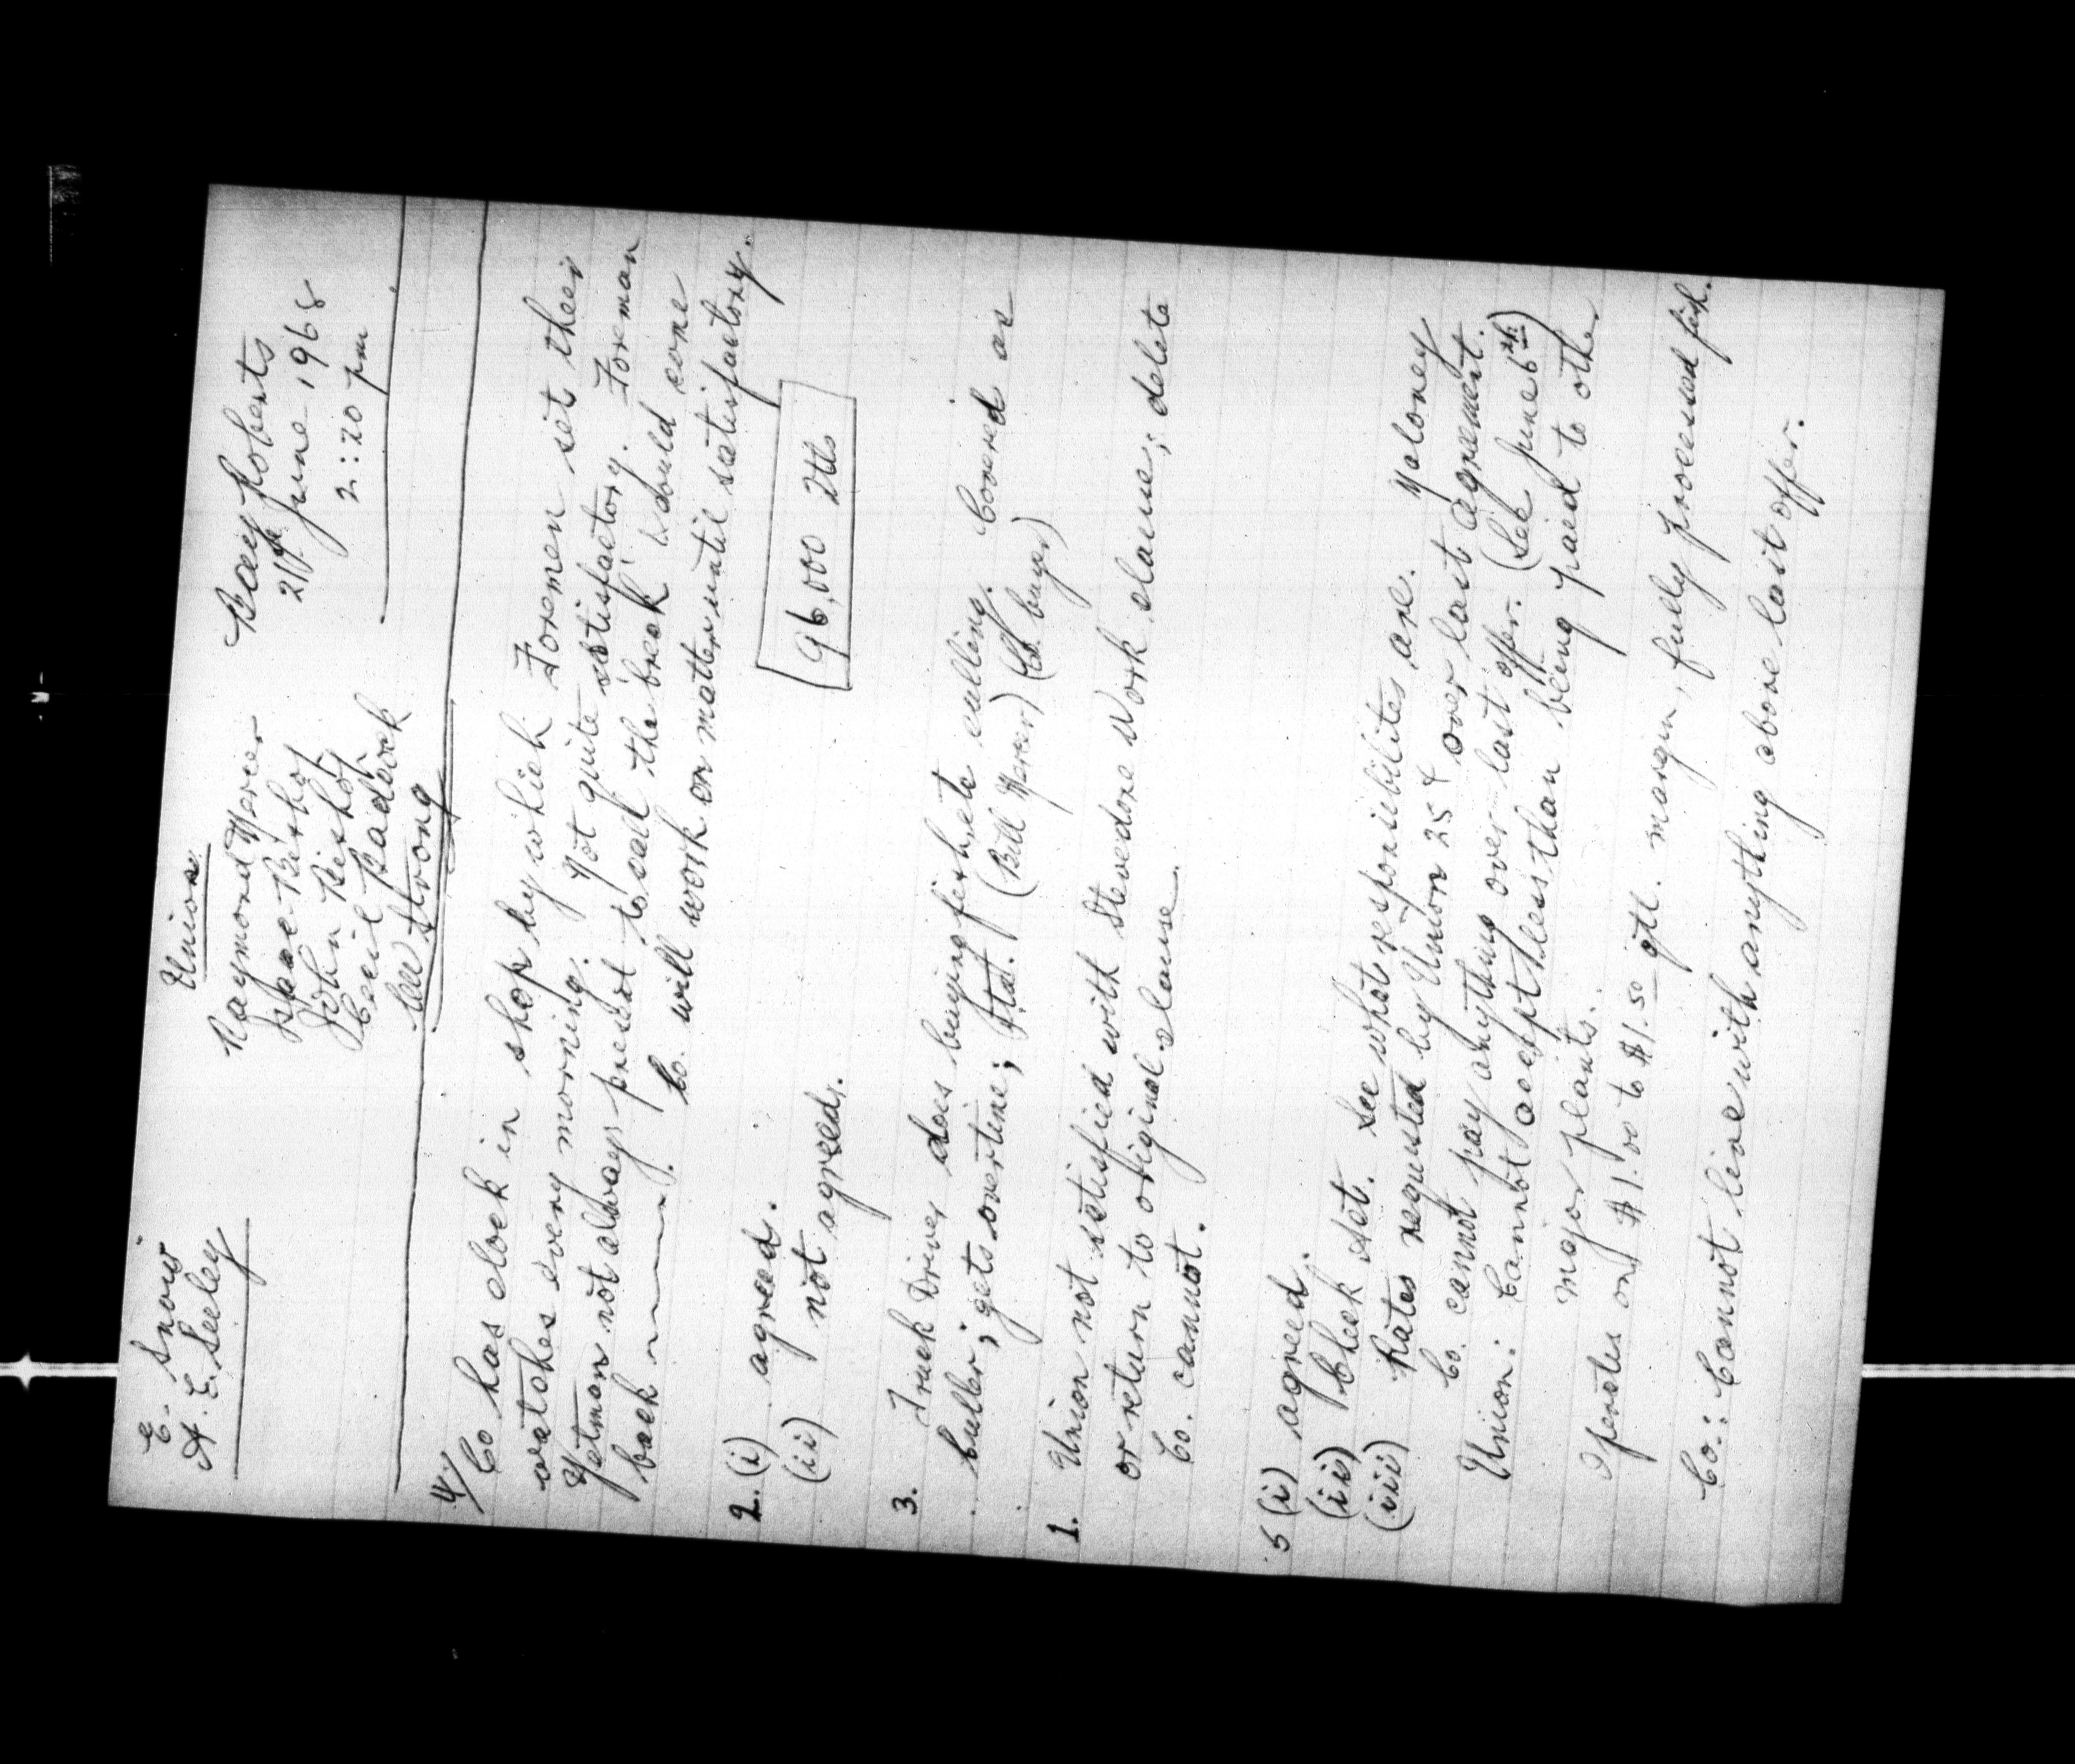 E. Snow
A. E. Seeley
Union
Raymond Mercer
Isaac Bishop
John Bishop
Cecil Badcock
Lew Strong
Bay Roberts
21st June 1968
2:20 pm
4/ Co has clock in shop by which Foremen set their
watches every morning. Not quite satisfactory. Foreman
Yetman not always present to call the break. Would come
back Co. will work on matter until satisfactory.
2. (i) agreed.
(ii) not agreed.
96,000 qtls
3. Truck Driver does buying fish, etc culling. Covered as
culler; gets overtime; Stat. (Bill Mercer) (Co. buyer)
1. Union not satisfied with Stevedore work clause; delete
or return to original clause.
Co. cannot.
5 (i) agreed.
(ii) Check det. See what responsibilites are. Maloney
(iii) Rates requested by Union 25¢ over last agreement.
Co. cannot pay anything over last offer. (See June 6th)
Union: Cannot accept less than being paid to other
major plants.
Operates on $1.00 to $1.50 qtl. margin, fully processed fish.
Co.: Cannot live with anything above last offer.